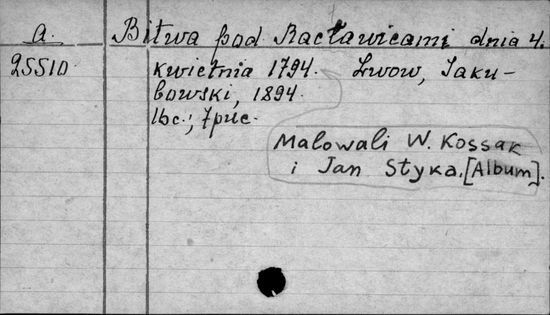 a. Bitwa pod Racławicami dnia 4.
25510 kwietnia 1794. Lwow, Jaku-
bowski, 1894.
Malowali W. Kossak
i Jan Styka. [Album].